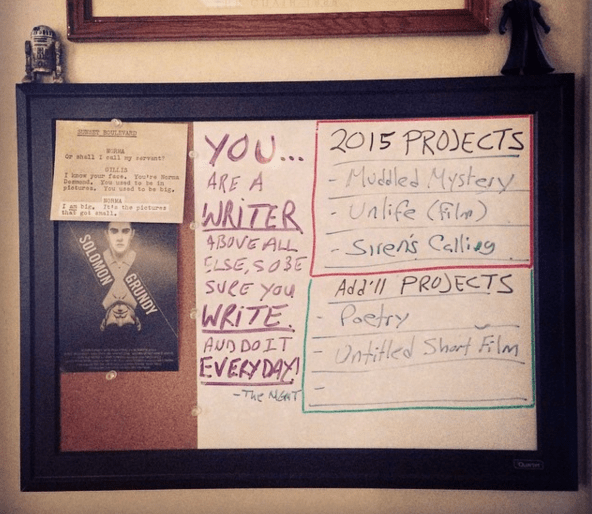 SUNSET BOULEVARD
NORMA
Or shall I call my servant?
GILLIS
I know your face. You're Norma
Desmond. You used to be in
pictures. You used to be big.
NORMA
I am big. It's the pictures
that got small.
SOLOMON
GRUNDY
YOU...
ARE A
WRITER
ABOVE ALL
ELSE, SO BE
SURE YOU
WRITE.
AND DO IT
EVERYDAY!
- The MGMT
2015 PROJECTS
- Muddled Mystery
- Unlife (Film)
- Siren's Calling
Add'll PROJECTS
- Poetry
- Untitled Short Film
-
Quartet